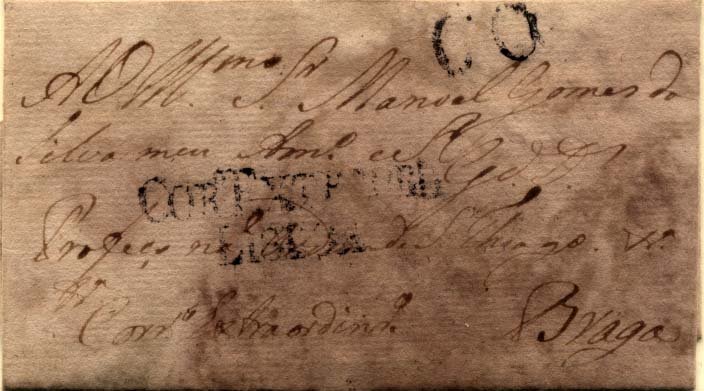 60
Ao Illmo. Sr. Manoel Gomes da
Silva meu Amo. e Sr.
CORR EXTR
LISBOA
Professo na de S. Thiago. &a.
&a.
Corro. Extraordinro. Braga